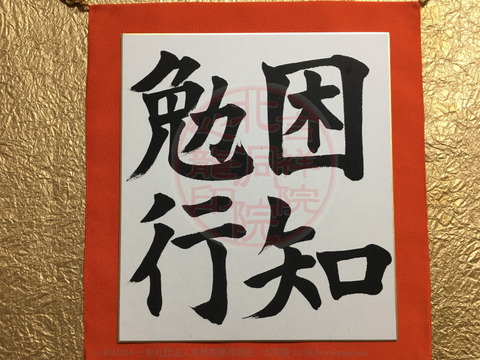 困知
勉行